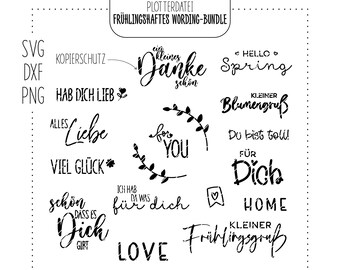 PLOTTERDATEI
FRÜHLINGSHAFTES WORDING-BUNDLE
SVG
DXF
PNG
KOPIERSCHUTZ
ein
kleines
Danke
schön
HELLO
Spring
HAB DICH LIEB
KLEINER
Blumengruß
ALLES
Liebe
for
YOU
Du bist toll!
VIEL GLÜCK
FÜR
Dich
schön
DASS ES
Dich
GIBT
ICH HAB
DA WAS
für dich
HOME
LOVE
KLEINER
Frühlingsgruß